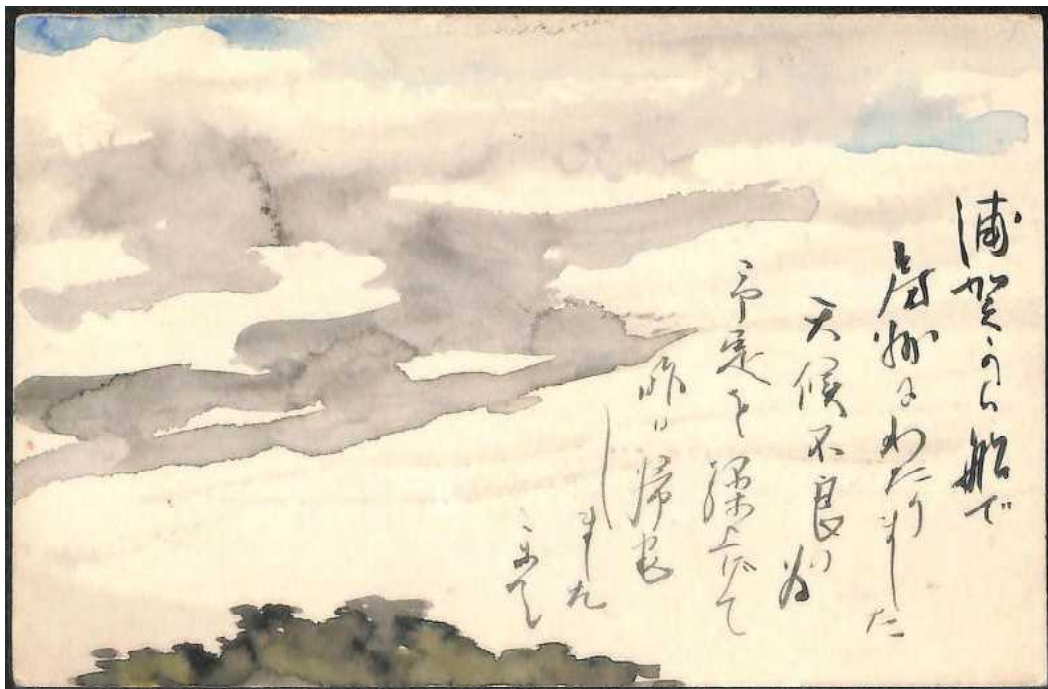 浦賀から船で
房州にわたりました
天候不良の為
予定を繰上げて
昨日帰宅
しました